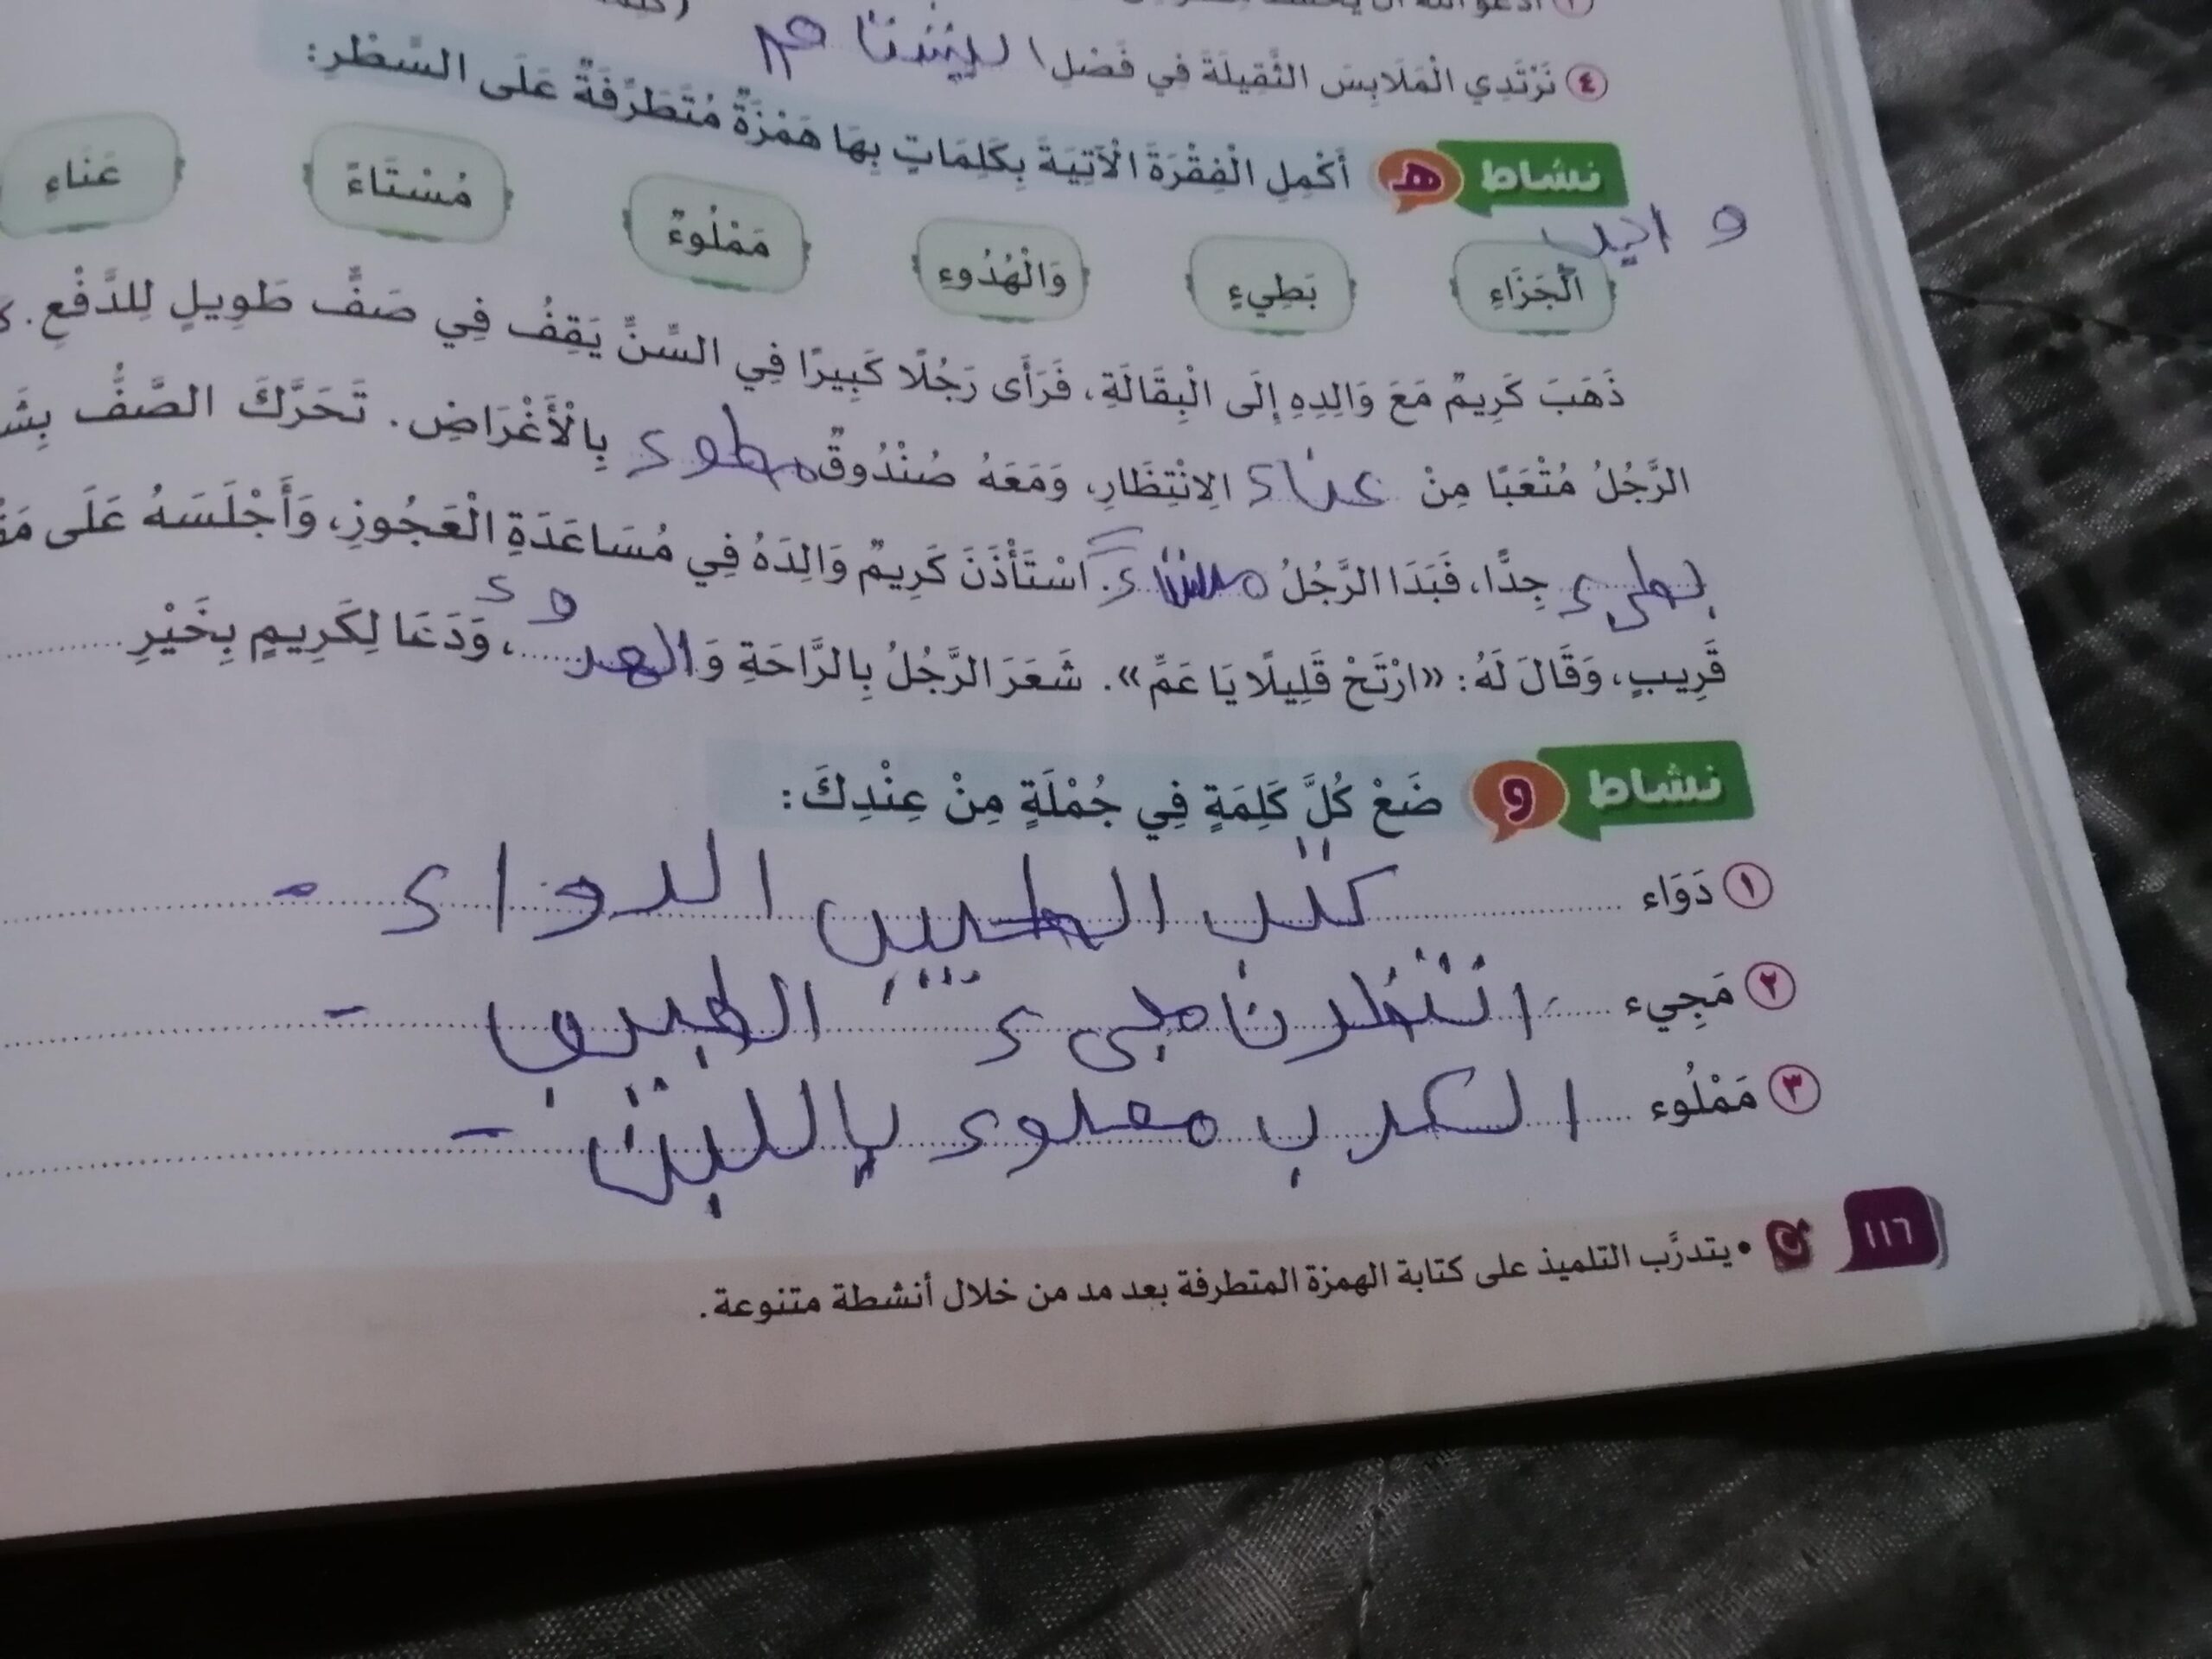 ٤ نَرْتَدِي الْمَلَابِسَ الثَّقِيلَةَ فِي فَصْلِ
نشاط هـ أَكْمِلِ الْفِقْرَةَ الْآتِيَةَ بِكَلِمَاتٍ بِهَا هَمْزَةٌ مُتَطَرِّفَةٌ عَلَى السَّطْرِ:
الْجَزَاءِ بَطِيءٍ وَالْهُدُوءِ مَمْلُوءٌ مُسْتَاءً عَنَاءِ
ذَهَبَ كَرِيمٌ مَعَ وَالِدِهِ إِلَى الْبِقَالَةِ، فَرَأَى رَجُلًا كَبِيرًا فِي السِّنِّ يَقِفُ فِي صَفٍّ طَوِيلٍ لِلدَّفْعِ.
الرَّجُلُ مُتْعَبًا مِنْ عناء الِانْتِظَارِ، وَمَعَهُ صُنْدُوقٌ مملوء بِالْأَغْرَاضِ. تَحَرَّكَ الصَّفُّ
بطيء جِدًّا، فَبَدَا الرَّجُلُ مستاء. اسْتَأْذَنَ كَرِيمٌ وَالِدَهُ فِي مُسَاعَدَةِ الْعَجُوزِ، وَأَجْلَسَهُ عَلَى
قَرِيبٍ، وَقَالَ لَهُ: «ارْتَحْ قَلِيلًا يَا عَمِّ». شَعَرَ الرَّجُلُ بِالرَّاحَةِ وَالهدوء، وَدَعَا لِكَرِيمٍ بِخَيْرِ
نشاط و ضَعْ كُلَّ كَلِمَةٍ فِي جُمْلَةٍ مِنْ عِنْدِكَ:
١ دَوَاء كتب الطبيب الدواء -
٢ مَجِيء انتظرنا مجىء -
٣ مَمْلُوء مملوء باللبن -
١١٦
• يتدرَّب التلميذ على كتابة الهمزة المتطرفة بعد مد من خلال أنشطة متنوعة.